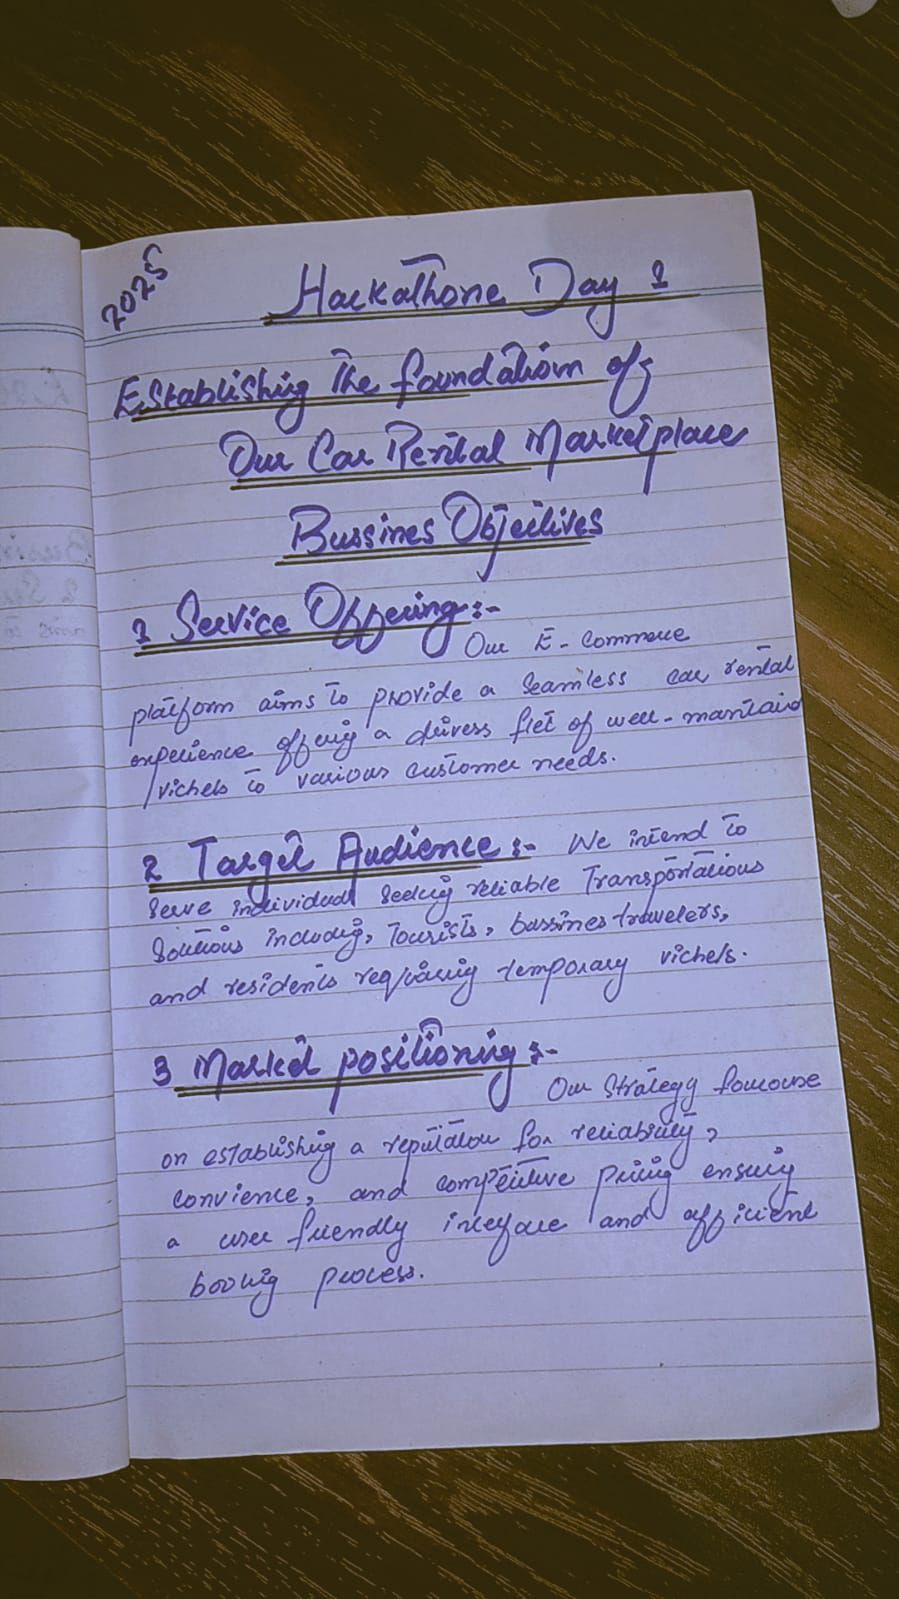 2025
Hackathone Day 1
Establishing The foundation of
Our Car Rental Marketplace
Bussines Objectives
1 Service Offering:-
Our E-commerce
platform aims to provide a seamless car rental
experience offering a divers flet of well-maintaind
vichels to various customer needs.
2 Target Audience:- We intend to
serve individual seeking reliable Transportations
Solutions including, Tourists, bussines travelers,
and residents requiring temporary vichels.
3 Market positioning:-
Our strategy
on establishing a reputation for reliability,
convience, and competitive pricing ensuring
a user friendly interface and efficient
booking process.